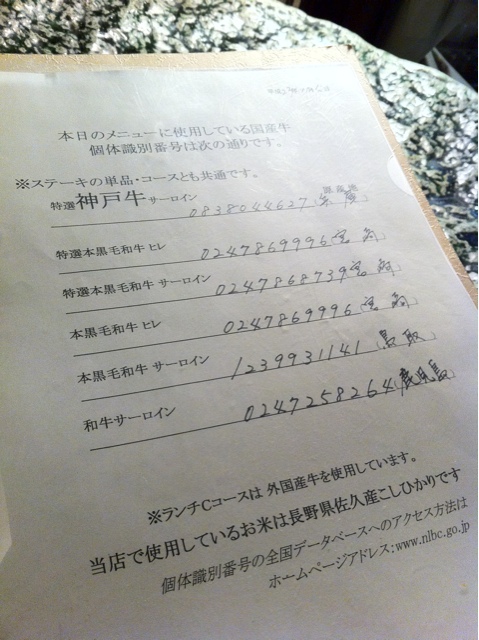 本日のメニューに使用している国産牛
個体識別番号は次の通りです。
※ステーキの単品・コースとも共通です。
特選神戸牛サーロイン 0838044627(兵庫)
特選本黒毛和牛 ヒレ 0247869996(宮崎)
特選本黒毛和牛 サーロイン 0247868739(宮崎)
本黒毛和牛 ヒレ 0247869996(宮崎)
本黒毛和牛 サーロイン 1239931141(鳥取)
和牛サーロイン 0247258264(鹿児島)
※ランチCコースは 外国産牛を使用しています。
当店で使用しているお米は長野県佐久産こしひかりです
個体識別番号の全国データベースへのアクセス方法は
ホームページアドレス:www.nlbc.go.jp